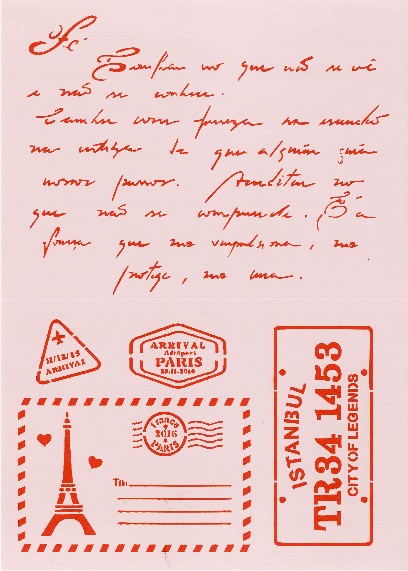 Fé
Confiar no que não se vê
e não se conhece.
Caminhar com firmeza na escuridão
na certeza de que alguém guia
nossos passos. Acreditar no
que não se compreende. É a
força que nos impulsiona, nos
protege, nos cura.
11/12/85
ARRIVAL
ARRIVAL
Aéroport
PARIS
France
2016
PARIS
To:
ISTANBUL
TR34 1453
CITY OF LEGENDS